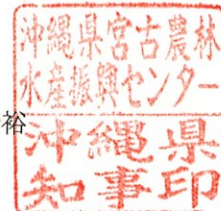 沖縄県宮古農林
水産振興センター
裕
沖縄県
知事印